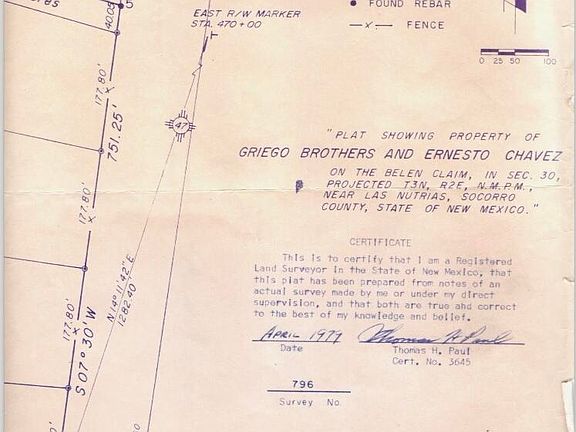 EAST R/W MARKER
STA. 470+00
FOUND REBAR
FENCE
0 25 50 100
40.05'
177.80'
751.25'
47
177.80'
N14°11'42"E
1282.40'
177.80'
S 07° 30' W
"PLAT SHOWING PROPERTY OF
GRIEGO BROTHERS AND ERNESTO CHAVEZ
ON THE BELEN CLAIM, IN SEC. 30,
PROJECTED T3N, R2E, N.M.P.M.,
NEAR LAS NUTRIAS, SOCORRO
COUNTY, STATE OF NEW MEXICO."
CERTIFICATE
This is to certify that I am a Registered
Land Surveyor in the State of New Mexico, that
this plat has been prepared from notes of an
actual survey made by me or under my direct
supervision, and that both are true and correct
to the best of my knowledge and belief.
APRIL 1979 Thomas H Paul
Date Thomas H. Paul
Cert. No. 3645
796
Survey No.